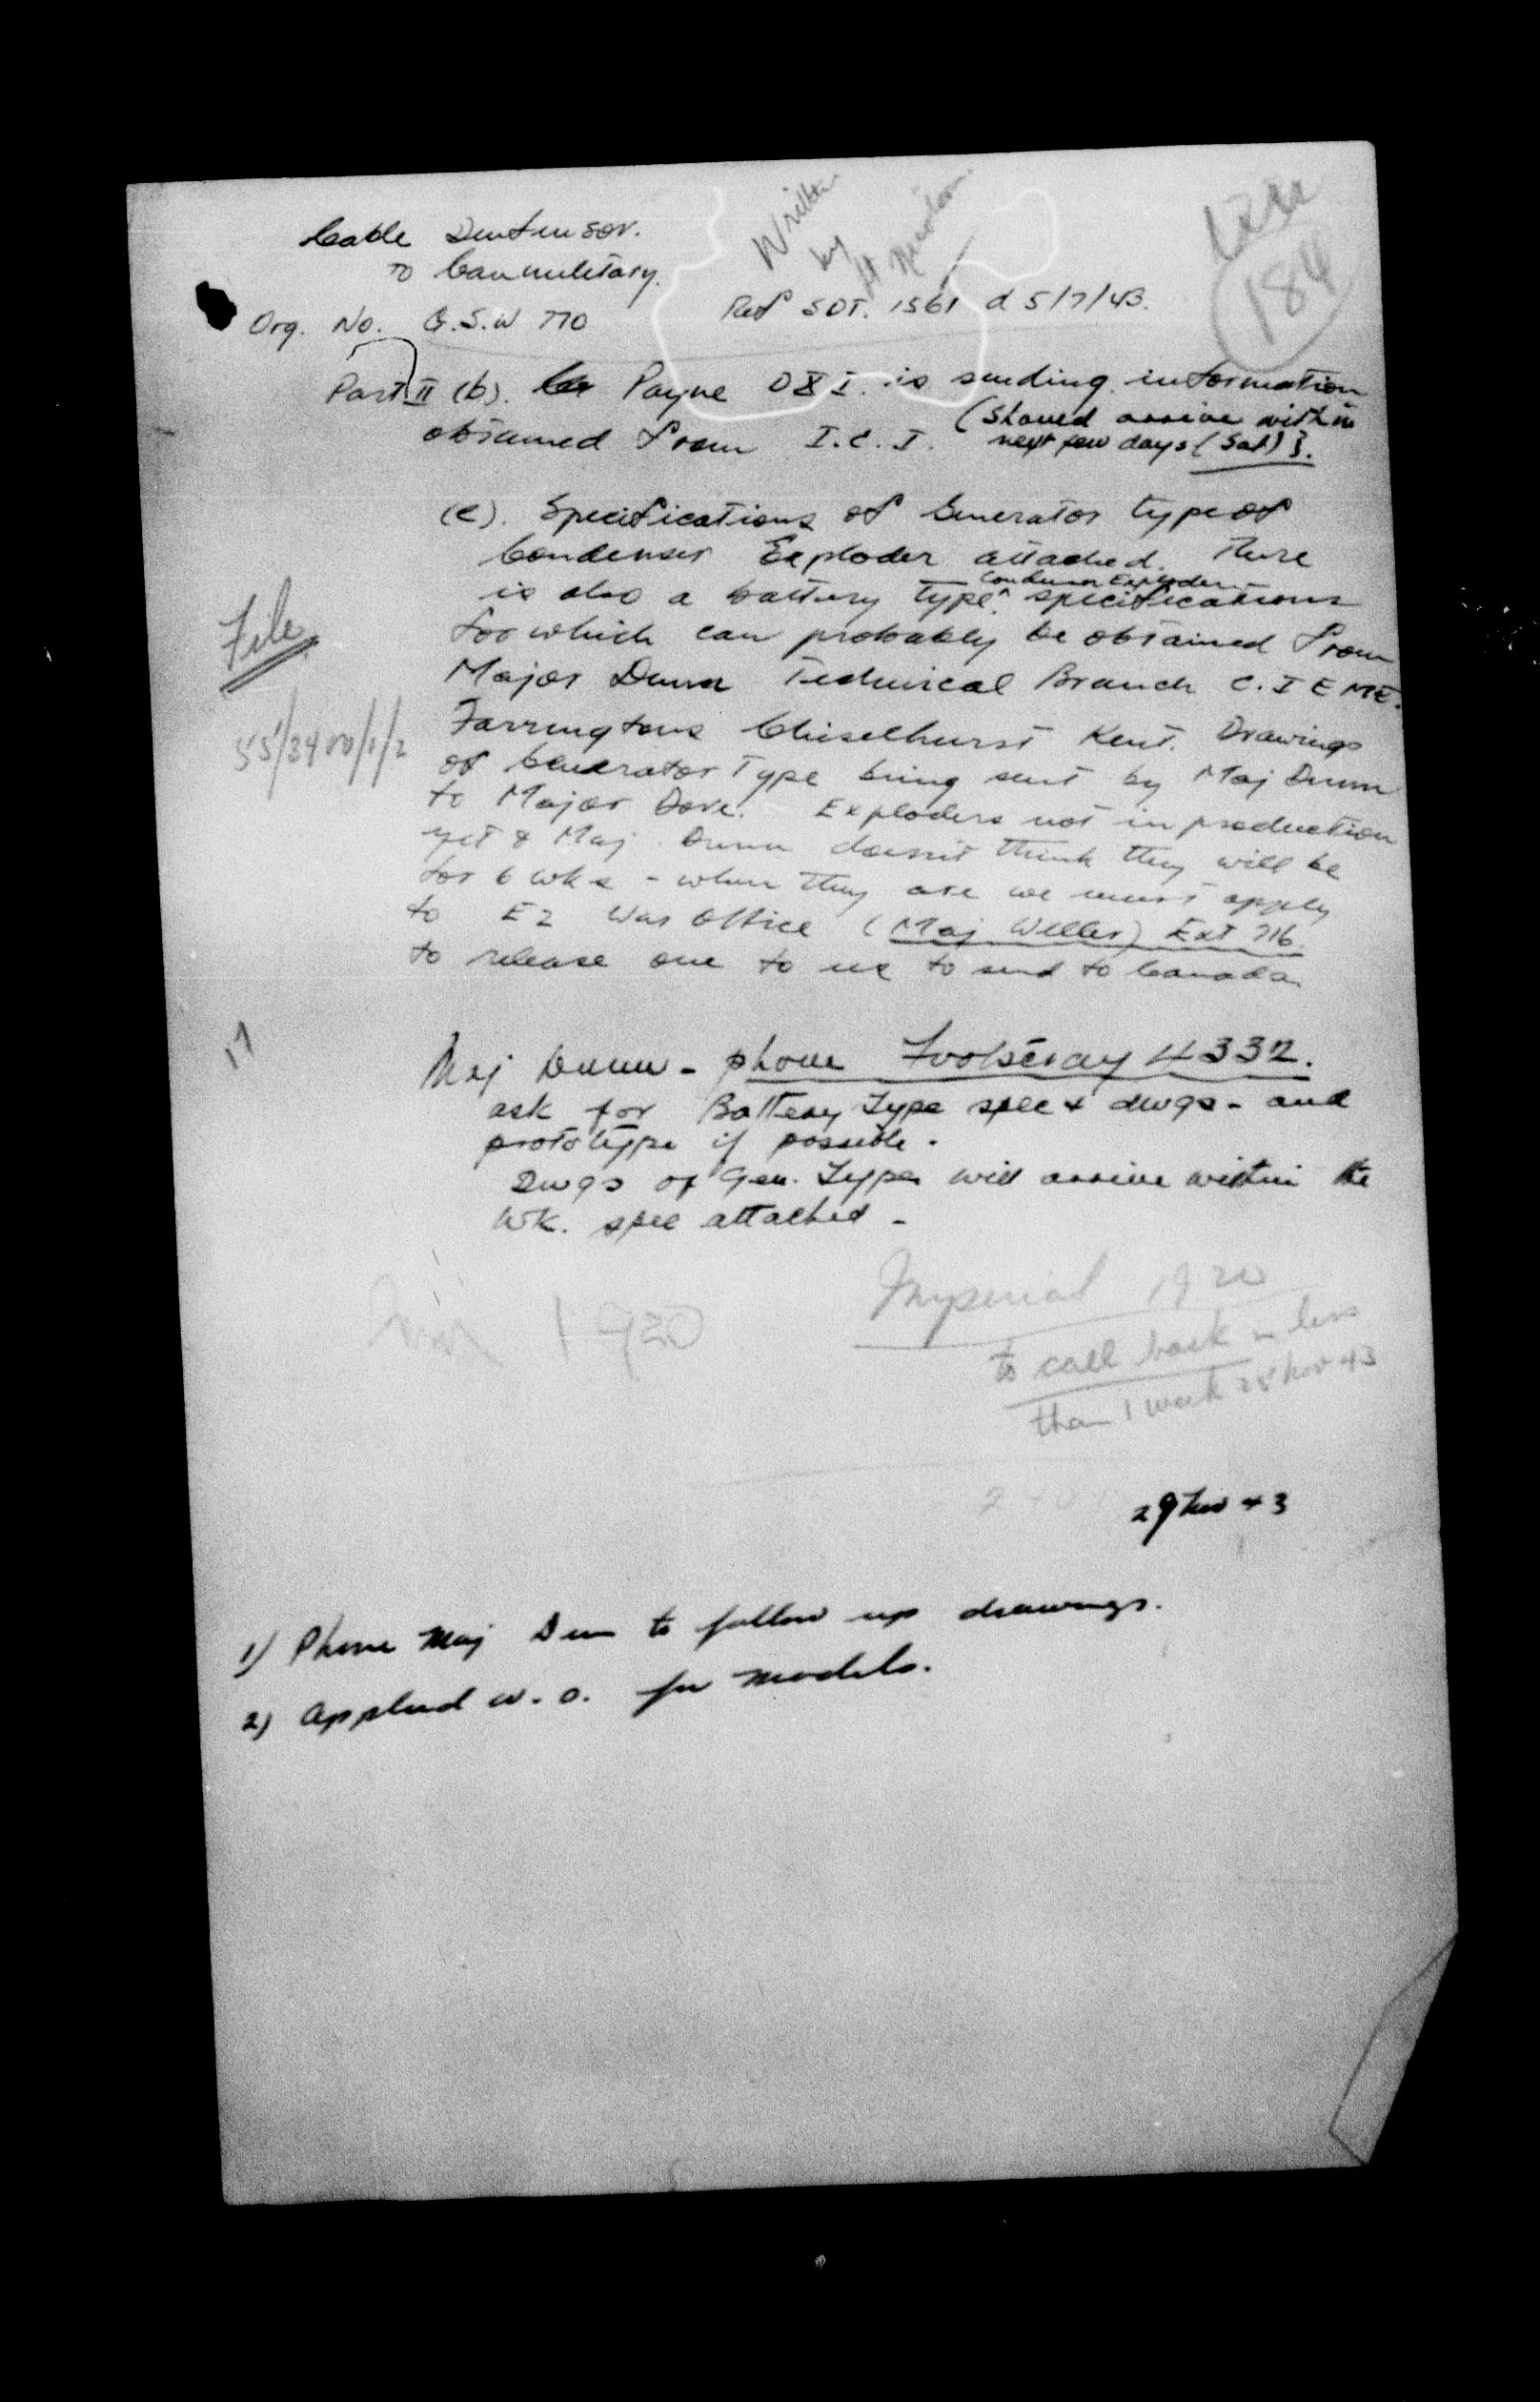 Cable Dentinsor.
to Canmilitary.
Written
by
184
Org. No. G.S.W 770
Ref SDT. 1561 d 5/7/43.
Part II (b). Payne is sending information
obtained from I.C.I. (Should arrive within
next few days (Sat)).
(c). Specifications of Generator type of
Condenser Exploder attached. There
is also a battery type ^ Condenser Exploder specifications
for which can probably be obtained from
File
Major Dunn Technical Branch C.I.E.M.E.
55/8400/1/2
Farringtons Chiselhurst Kent. Drawings
of Generator Type being sent by Maj Dunn
to Major Dove. Exploders not in production
yet & Maj. Dunn doesn't think they will be
for 6 wks - when they are we must apply
to E2 War Office (Maj Weller) Ext 716.
to release one to us to send to Canada
Maj Dunn - phone Footscray 4332.
ask for Battery Type spec & dwgs - and
prototype if possible.
Dwgs of Gen. Type will arrive within the
wk. spec attached -
1920
Imperial 1920
to call back in less
than 1 week 25 Nov 43
29 Nov 43
1) Phone Maj Dunn to follow up drawings.
2) Applied W.O. for models.